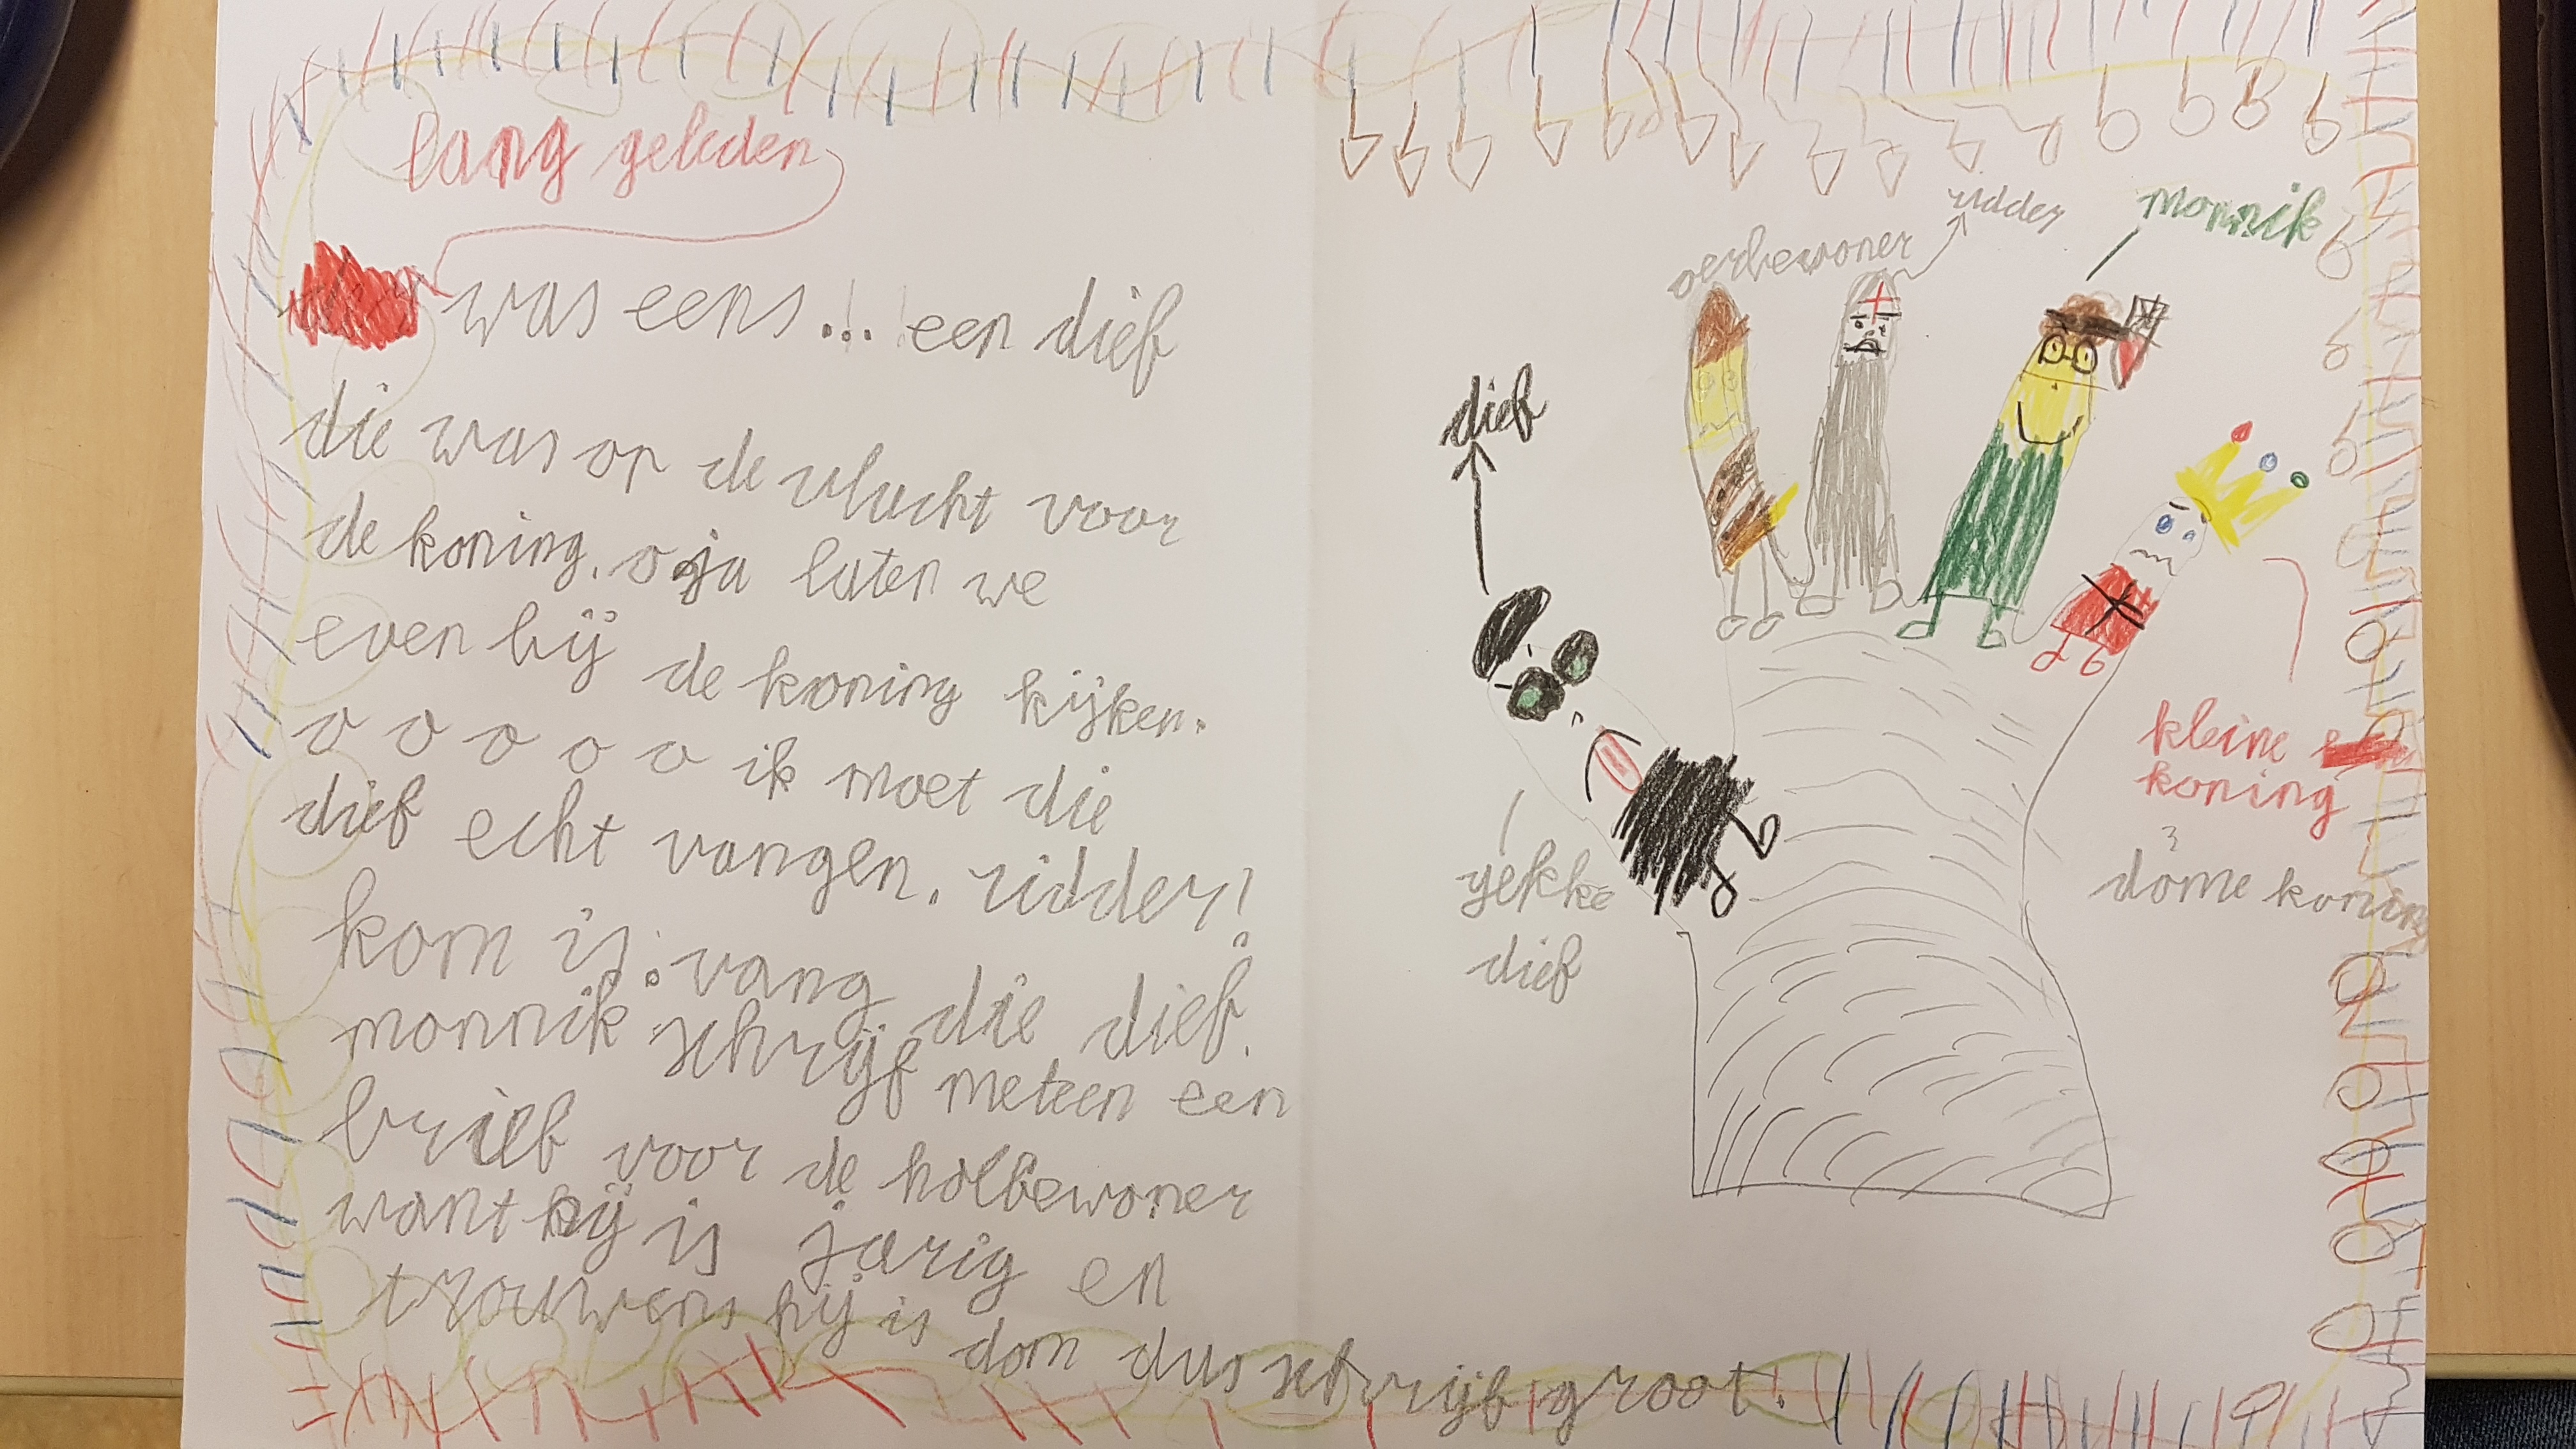 lang geleden
was eens... een dief
die was op de vlucht voor
de koning. o ja laten we
even bij de koning kijken.
o o o o o ik moet die
dief echt vangen. ridder!
kom is: vang die dief.
monnik schrijf meteen een
brief voor de holbewoner
want hij is jarig en
trouwens hij is dom dus schrijf groot!
oerbewoner
ridder
monnik
dief
gekke
dief
kleine
koning
dome koning